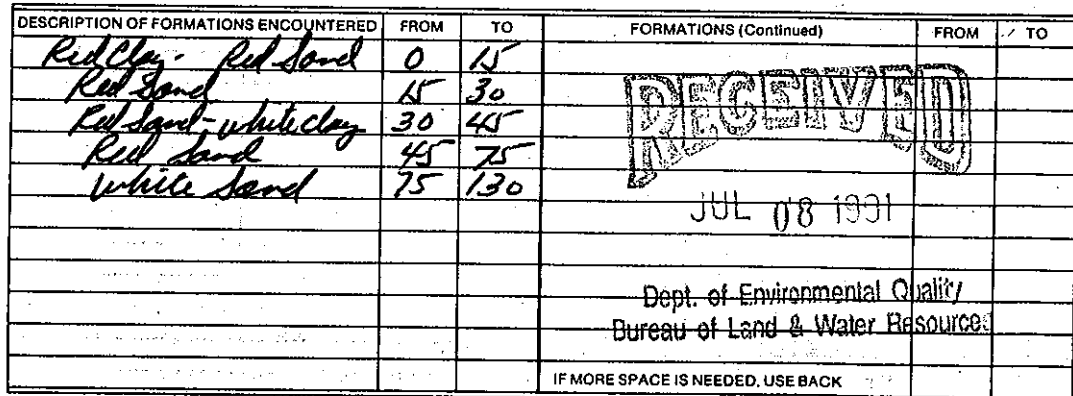 DESCRIPTION OF FORMATIONS ENCOUNTERED FROM TO FORMATIONS (Continued) FROM TO
Red Clay - Red Sand 0 15
Red Sand 15 30
Red Sand - white clay 30 45
Red Sand 45 75
White Sand 75 130
RECEIVED
JUL 08 1991
Dept. of Environmental Quality
Bureau of Land & Water Resources
IF MORE SPACE IS NEEDED, USE BACK